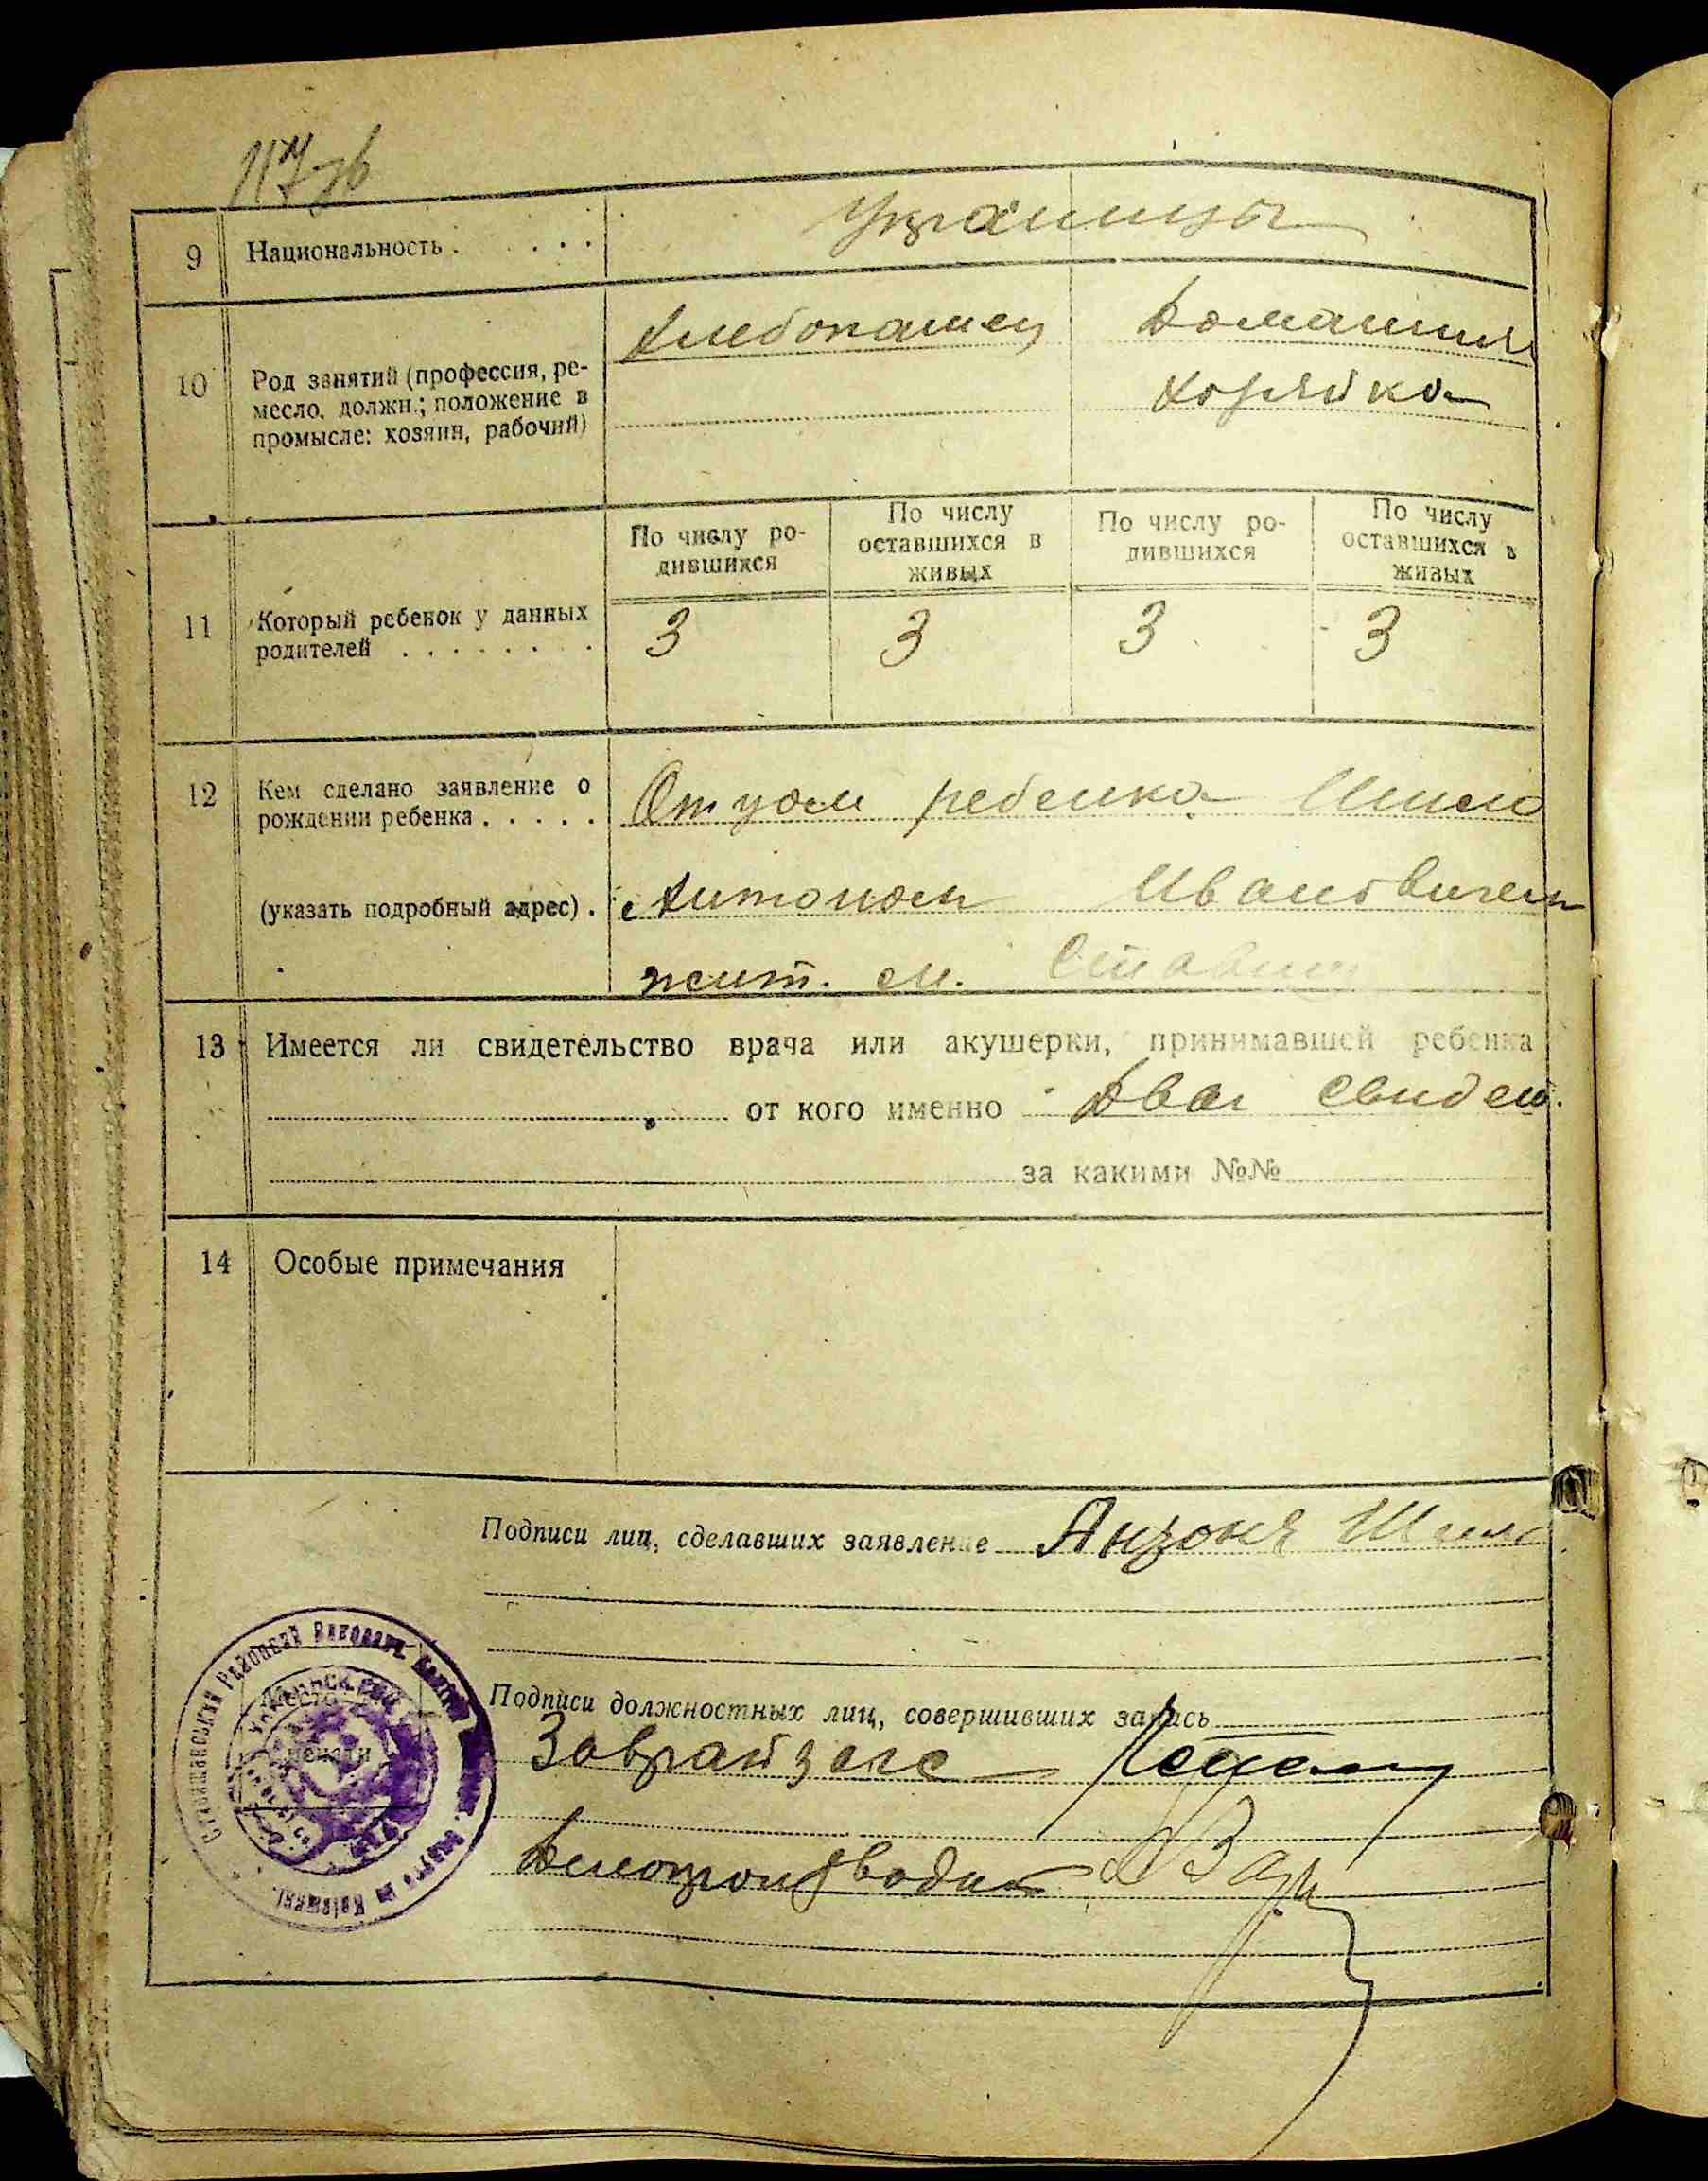 117 зв
9 Национальность . . . . Украинцы
10 Род занятий (профессия, ре-
месло, должн.; положение в
промысле: хозяин, рабочий)
Хлебопашец
Домашняя
хозяйка
11 Который ребенок у данных
родителей . . . . . . . .
По числу ро-
дившихся
По числу
оставшихся в
живых
По числу ро-
дившихся
По числу
оставшихся в
живых
3 3 3 3
12 Кем сделано заявление о
рождении ребенка . . . . .
(указать подробный адрес) .
Отцом ребенка Шило
Антоном Ивановичем
жит. м. Ставищ
13 Имеется ли свидетельство врача или акушерки, принимавшей ребенка
от кого именно Два свидет.
за какими №№
14 Особые примечания
Подписи лиц, сделавших заявление Шило
Подписи должностных лиц, совершивших запись
Заврайзагс
Делопроизводит